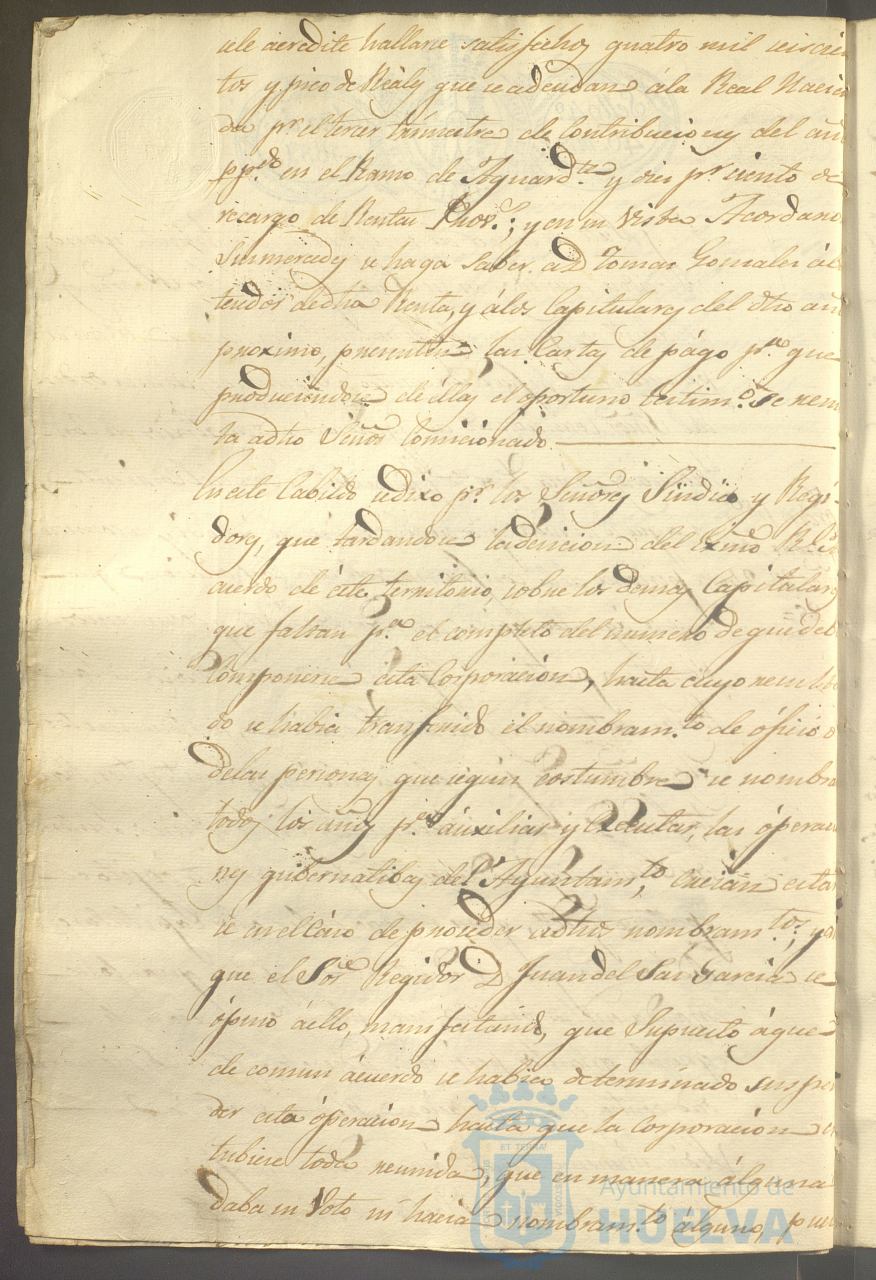 sele acredite hallarse satisfechos quatro mil seiscien
tos y pico de Reales que se adeudan á la Real Hacien
da pr. el tercer trimestre de Contribuciones del año
pp.do en el Ramo de Aguard.te y diez pr. ciento de
recargo de Rentas Prov.s; y en su vista Acordaron
Sus mercedes se haga saber á D Tomas Gonzales
tendor de dha Renta, y á los Capitulares del dho año
proximo, presenten las Cartas de págo pr.a que
produciendose de éllas el oportuno testim.o se remi
ta a dho Señor Comicionado
En este Cabildo se dixo pr. los Señores Sindico y Regi
dores, que tardandose la desicion del exmo Rl.
acuerdo de éste territorio, sobre los demas Capitulares
que faltan pr.a el completo del numero de que debe
componerse esta Corporacion, hasta cuyo
do se habia transferido el nombram.to de óficio
de las personas que según costumbre se nombran
todos los años pr.a áuxiliar y executar, las óperacio
nes gubernatibas del Ayuntam.to, creian esta
se en el Caso de proceder á dhos nombram.tos; y á
que el Sor. Regidor D Juan del Saz Garcia se
ópuso á ello, manifestando, que Supuesto á que
de comun ácuerdo se habia determinado suspen
der esta óperacion hasta que la Corporacion es
tubiese toda reunida, que en manera álguna
daba su Voto ni hacia nombram.to álguno, pues
ET TERRAE
CUSTODIA
Ayuntamiento de
HUELVA